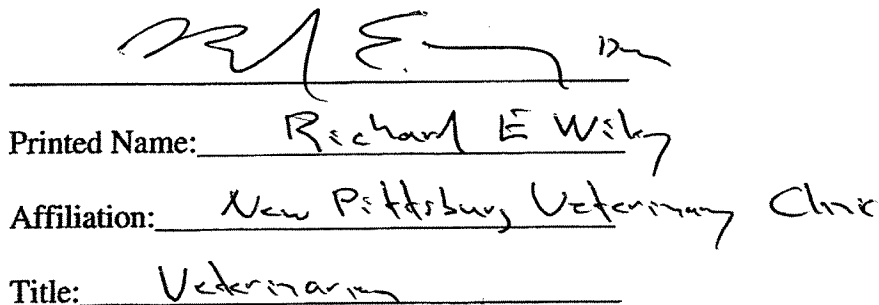 E.
Printed Name: Richard E Wiley
Affiliation: New Pittsburg Veterinary Clinic
Title: Veterinarian